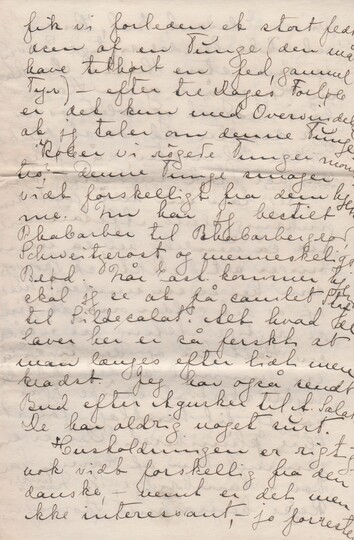 fik vi forleden et stort fed
af en Tunge (den må
have tilhørt en fed, gammel
Tyr) – efter tre Dages Forløb
er det kun med Overvindel
at jg taler om denne Tunge
Køber vi røgede Tunger
– denne Tunge smager
vidt forskelligt fra dem
me. Nu har jg bestilt
Rhabarber til Rhabarbergrød,
Schweitzerost og menneskelig
Brød. Når kommer
skal jg se at få samlet
til Sildesalat. Alt hvad
laver her er så ferskt at
man længes efter lidt
krads. Jeg har også sendt
Bud efter Agurker til A. Salat
De har aldrig noget surt.
Husholdningen er rigtig
nok vidt forskellig fra den
danske, – nemt er det, men
ikke interessant, – jo forreste